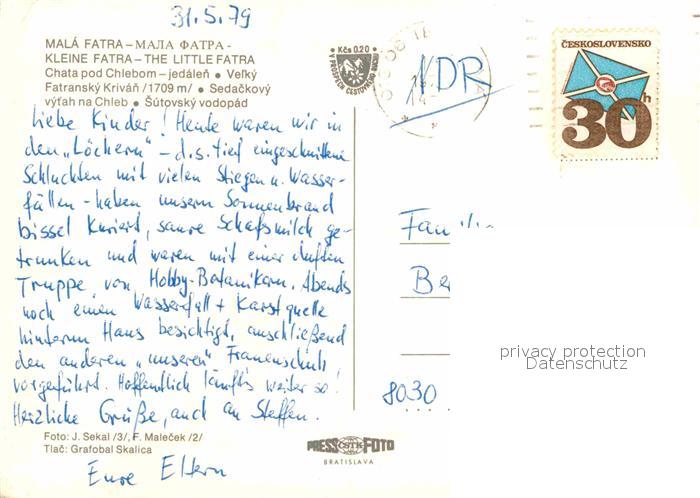 31.5.79
MALÁ FATRA – МАЛА ФАТРА -
KLEINE FATRA – THE LITTLE FATRA
Chata pod Chlebom – jedáleň • Veľký
Fatranský Kriváň /1709 m/ • Sedačkový
výťah na Chleb • Šútovský vodopád
Kčs 0.20
V PROSPECH CESTOVNÉHO RUCHU
DDR
ČESKOSLOVENSKO
30h
Liebe Kinder! Heute waren wir in
den „Löchern" – d.s. tief eingeschnittene
Schluchten mit vielen Stiegen u. Wasser-
fällen – haben unsern Sonnenbrand
bissel kuriert, saure Schafsmilch ge-
trunken und waren mit einer duften
Truppe von Hobby-Botanikern. Abends
noch einen Wasserfall + Karstquelle
hinterm Haus besichtigt, anschließend
den anderen „unseren" Frauenschuh
vorgeführt. Hoffentlich läuft's weiter so!
Herzliche Grüße, auch an Steffen.
Eure Eltern
Fam
Be
8030
privacy protection
Datenschutz
Foto: J. Sekal /3/, F. Maleček /2/
Tlač: Grafobal Skalica
PRESS ČSTK FOTO
BRATISLAVA